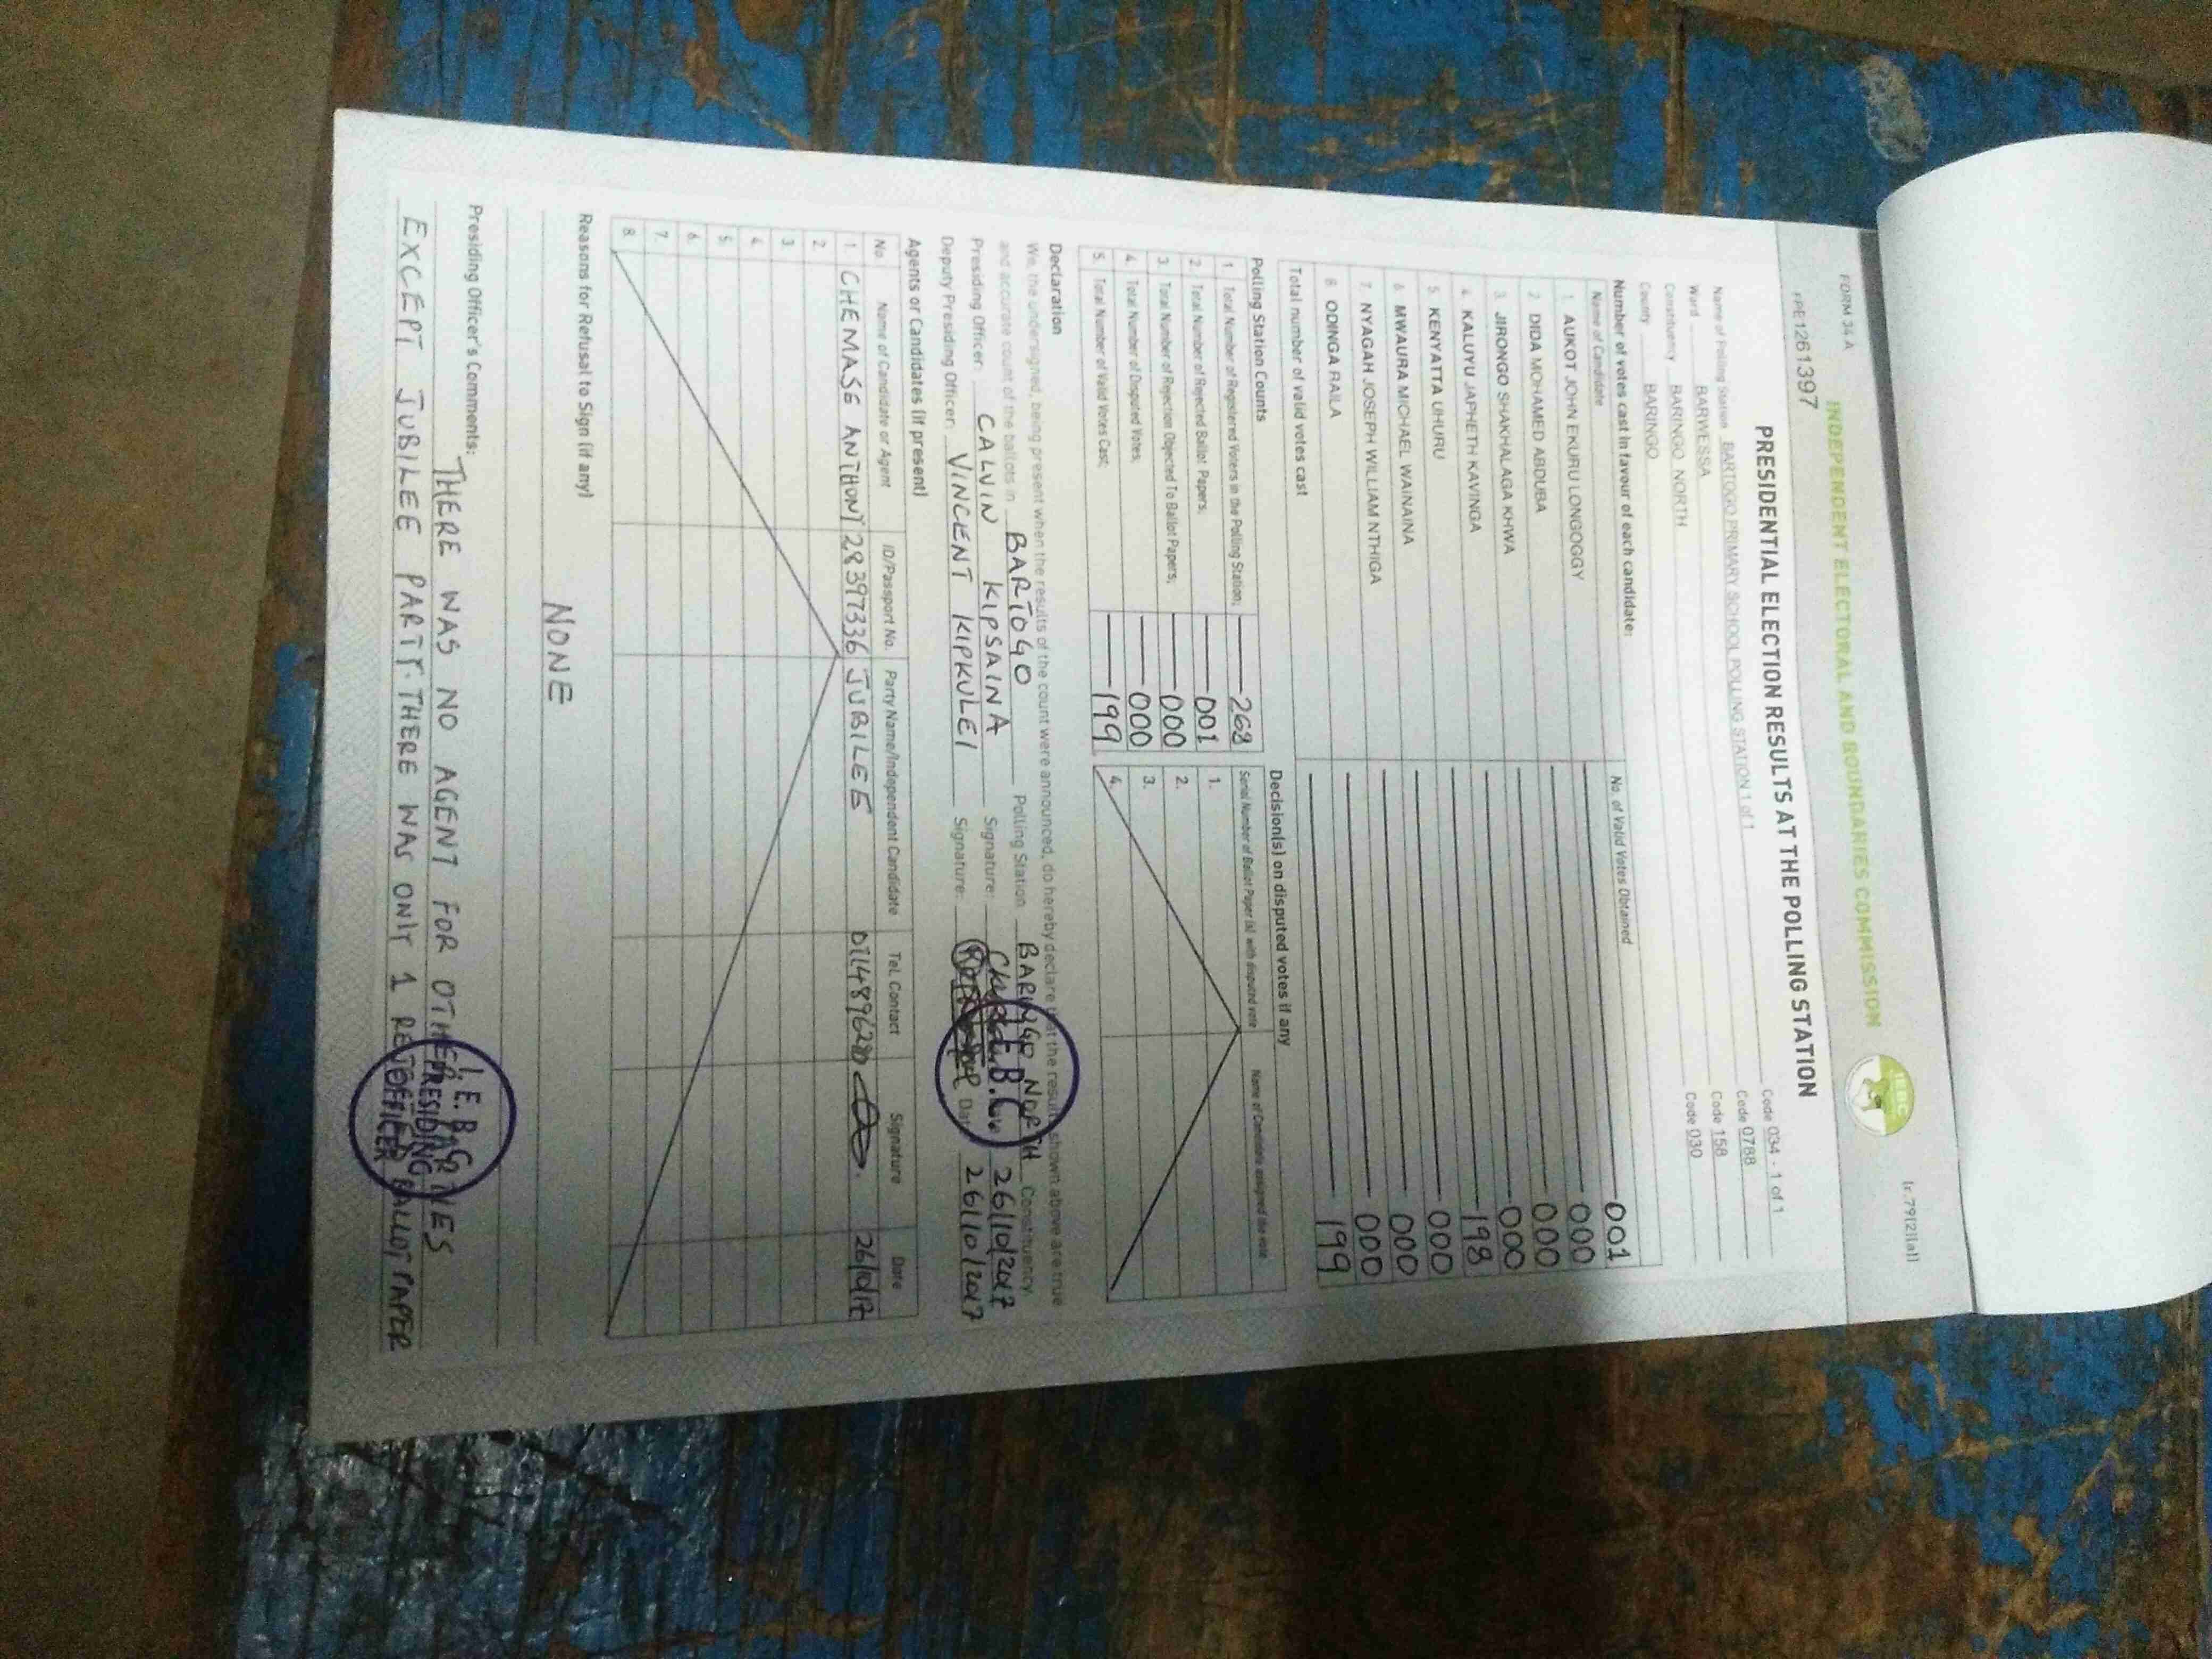 FORM 34A
(r.79(2)(a))
INDEPENDENT ELECTORAL AND BOUNDARIES COMMISSION
IEBC
PPE1261397
PRESIDENTIAL ELECTION RESULTS AT THE POLLING STATION
Name of Polling Station BARTOGO PRIMARY SCHOOL POLLING STATION 1 of 1 Code 034 - 1 of 1
Ward BARWESSA Code 0788
Constituency BARINGO NORTH Code 158
County BARINGO Code 030
Number of votes cast in favour of each candidate:
Name of Candidate No. of Valid Votes Obtained
1. AUKOT JOHN EKURU LONGOGGY 001
2. DIDA MOHAMED ABDUBA 000
3. JIRONGO SHAKHALAGA KHWA 000
4. KALUYU JAPHETH KAVINGA 000
5. KENYATTA UHURU 198
6. MWAURA MICHAEL WAINAINA 000
7. NYAGAH JOSEPH WILLIAM NTHIGA 000
8. ODINGA RAILA 000
Total number of valid votes cast 199
Polling Station Counts
1. Total Number of Registered Voters in the Polling Station; 268
2. Total Number of Rejected Ballot Papers; 001
3. Total Number of Rejection Objected To Ballot Papers; 000
4. Total Number of Disputed Votes; 000
5. Total Number of Valid Votes Cast; 199
Decision(s) on disputed votes if any
Serial Number of Ballot Paper (s) with disputed vote Name of Candidate assigned the vote
1.
2.
3.
4.
Declaration
We, the undersigned, being present when the results of the count were announced, do hereby declare that the results shown above are true
and accurate count of the ballots in BARTOGO Polling Station BARINGO NORTH Constituency
Presiding Officer: CALVIN KIPSAINA Signature: 26/10/2017
Deputy Presiding Officer: VINCENT KIPKULEI Signature: Date 26/10/2017
Agents or Candidates (if present)
No. Name of Candidate or Agent ID/Passport No. Party Name/Independent Candidate Tel. Contact Signature Date
1. CHEMASE ANTHONY 28397336 JUBILEE 26/10/17
2.
3.
4.
5.
6.
7.
8.
Reasons for Refusal to Sign (if any)
NONE
Presiding Officer's Comments:
THERE WAS NO AGENT FOR OTHER PARTIES
EXCEPT JUBILEE PARTY. THERE WAS ONLY 1 REJECTED BALLOT PAPER
I. E. B. C
PRESIDING
OFFICER